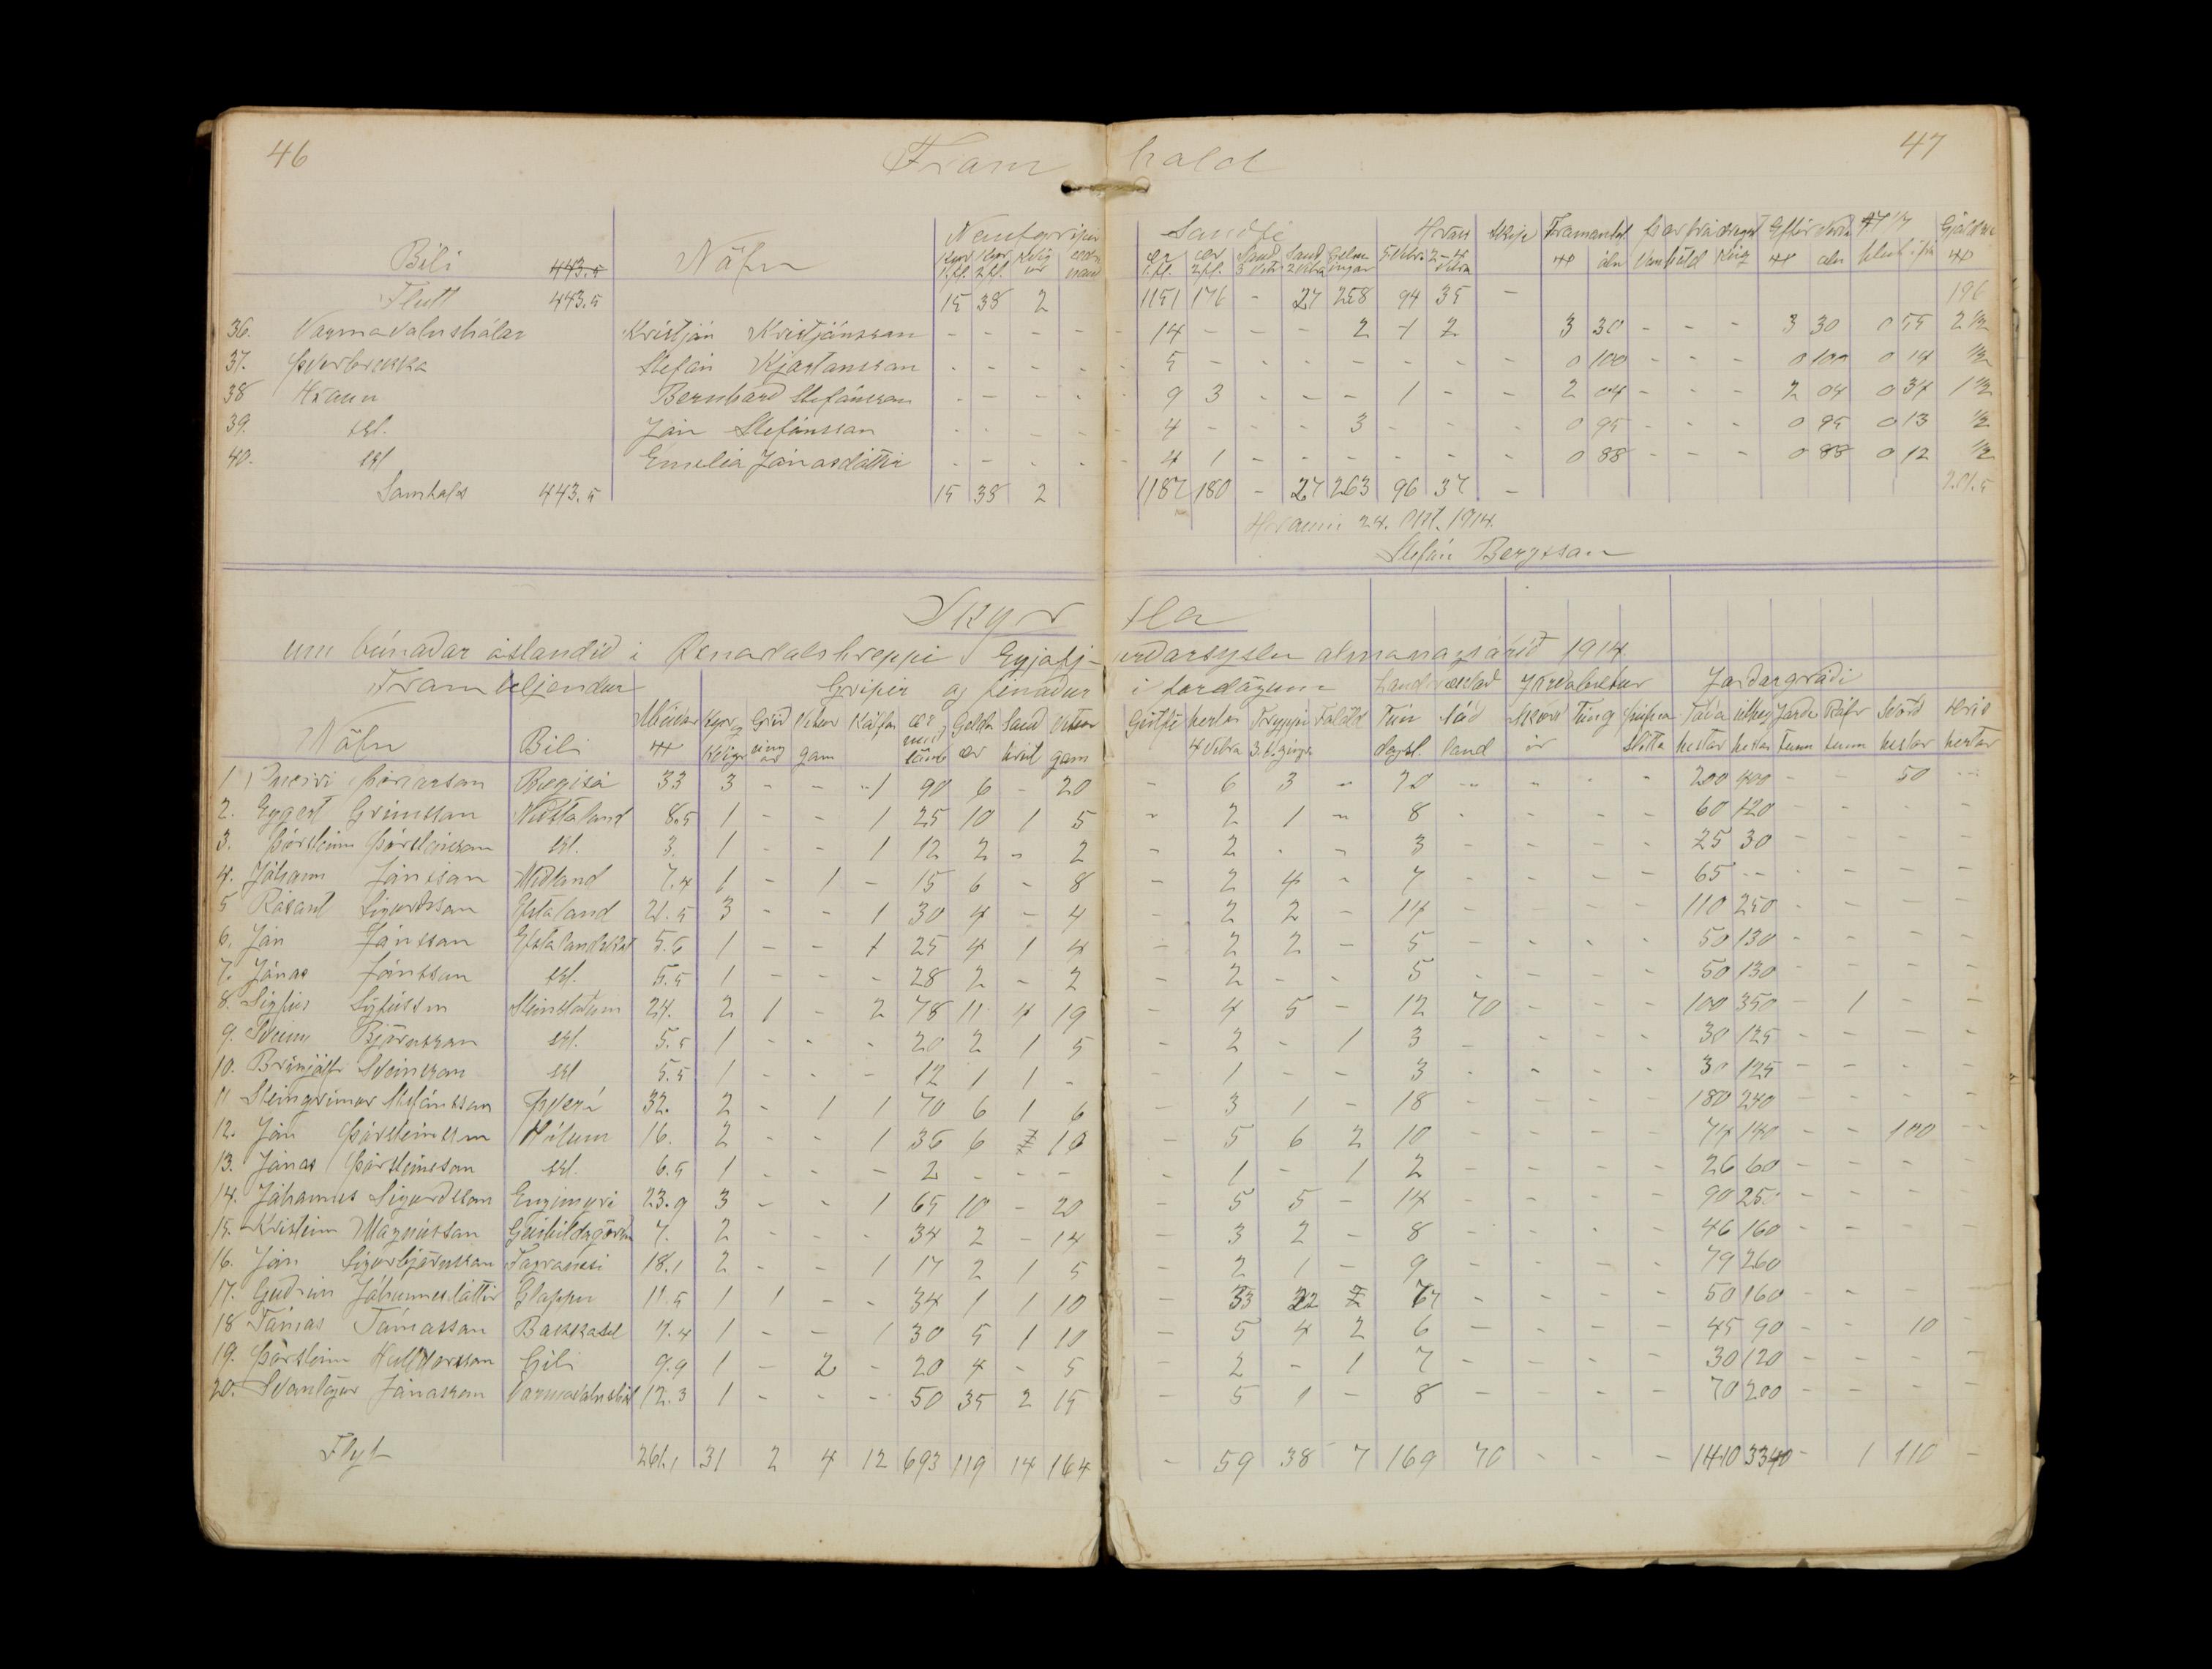 46 Fram hald 47
Nautgripir Sauðfé Hross Skip Framantal Þar frá dregst Eftir verða
Býli 443.5 Nöfn
Flutt 443.5 15 38 2 1151 176 - 27 258 94 35 - 196
36. Varmavatnshólar Kristján Kristjánsson - - - - 14 - - - 2 1 2 3 30 - - - 3 30 0 55 2 1/2
37. Þverbrekka Stefán Kjartansson - - - - 5 - - - - - - - 0 100 - - - 0 100 0 14 1/2
38 Hraun Bernharð Stefánsson - - - - 9 3 - - - 1 - - 2 04 - - - 2 04 0 34 1 1/2
39. sst. Jón Stefánsson - - - - 4 - - - 3 - - - 0 95 - - - 0 95 0 13 1/2
40. sst Emelía Jónasdóttir - - - - 4 1 - - - - - - 0 88 - - - 0 88 0 12 1/2
Samtals 443.5 15 38 2 1187 180 - 27 263 96 37 - 201.5
Hrauni 24. Okt. 1914.
Stefán Bergsson
Skýr sla
um búnaðar ástandið í Öxnadalshreppi Eyjafj- arðarsýslu almanaksárið 1914.
Framteljendur Gripir og fénaður í fardögum Jarðabætur Jarðargróði
Nöfn Býli
1 Snorri Þórðarson Bægisá 33 3 - - 1 90 6 - 20 - 6 3 - 20 - - - - 200 400 - - 50 -
2. Eggert Grímsson Neðstaland 8.5 1 - - 1 25 10 1 5 - 2 1 - 8 - - - - 60 120 - - - -
3. Þórsteinn Þórsteinsson sst. 3. 1 - - 1 12 2 - 2 - 2 - - 3 - - - - 25 30 - - - -
4. Jóhann Jónsson Miðland 7.4 1 - 1 - 15 6 - 8 - 2 4 - 7 - - - - 65 - - - - -
5 Rósant Sigurðsson Efstaland 21.5 3 - - 1 30 4 - 4 - 2 2 - 14 - - - - 110 250 - - - -
6. Jón Jónsson Efstalandskot 5.6 1 - - 1 25 4 1 4 - 2 2 - 5 - - - - 50 130 - - - -
7. Jónas Jónsson sst. 5.5 1 - - - 28 2 - 2 - 2 - - 5 - - - - 50 130 - - - -
8. Sigfús Sigfússon Steinstöðum 24. 2 1 - 2 78 11 4 19 - 4 5 - 12 70 - - - 100 350 - 1 - -
9. Sveinn Björnsson sst. 5.5 1 - - - 20 2 1 5 - 2 - 1 3 - - - - 30 125 - - - -
10. Brynjólfr Sveinsson sst 5.5 1 - - - 12 1 1 - - 1 - - 3 - - - - 30 125 - - - -
11 Steingrímur Stefánsson Þverá 32. 2 - 1 1 70 6 1 6 - 3 1 - 18 - - - - 180 240 - - - -
12. Jón Þórsteinsson Hólum 16. 2 - - 1 36 6 16 - 5 6 2 10 - - - - 74 140 - - 100 -
13. Jónas Þórsteinsson sst. 6.5 1 - - - 2 - - - - 1 - 1 2 - - - - 26 60 - - - -
14. Jóhannes Sigurðsson Engimýri 23.9 3 - - 1 65 10 - 20 - 5 5 - 14 - - - - 90 250 - - - -
15. Kristinn Magnússon Geirhildargörðum 7. 2 - - - 34 2 - 14 - 3 2 - 8 - - - - 46 160 - - - -
16. Jón Sigurbjörnsson Fagranesi 18.1 2 - - 1 17 2 1 5 - 2 1 - 9 - - - - 79 260
17. Guðrún Jóhannesdóttir Gloppu 11.5 1 1 - - 34 1 1 10 - 3 2 - 7 - - - - 50 160 - - - -
18 Tómas Tómasson Bakkasel 7.4 1 - - 1 30 5 1 10 - 5 4 2 6 - - - - 45 90 - - 10 -
19. Þórsteinn Halldórsson Gili 9.9 1 - 2 - 20 4 - 5 - 2 - 1 7 - - - - 30 120 - - - -
20. Svanlögur Jónasson Varmavatnshól 12.3 1 - - - 50 35 2 15 - 5 1 - 8 - - - - 70 200 - - - -
Flyt 261.1 31 2 4 12 693 119 14 164 - 59 38 7 169 70 - - - 1410 3340 - 1 110 -